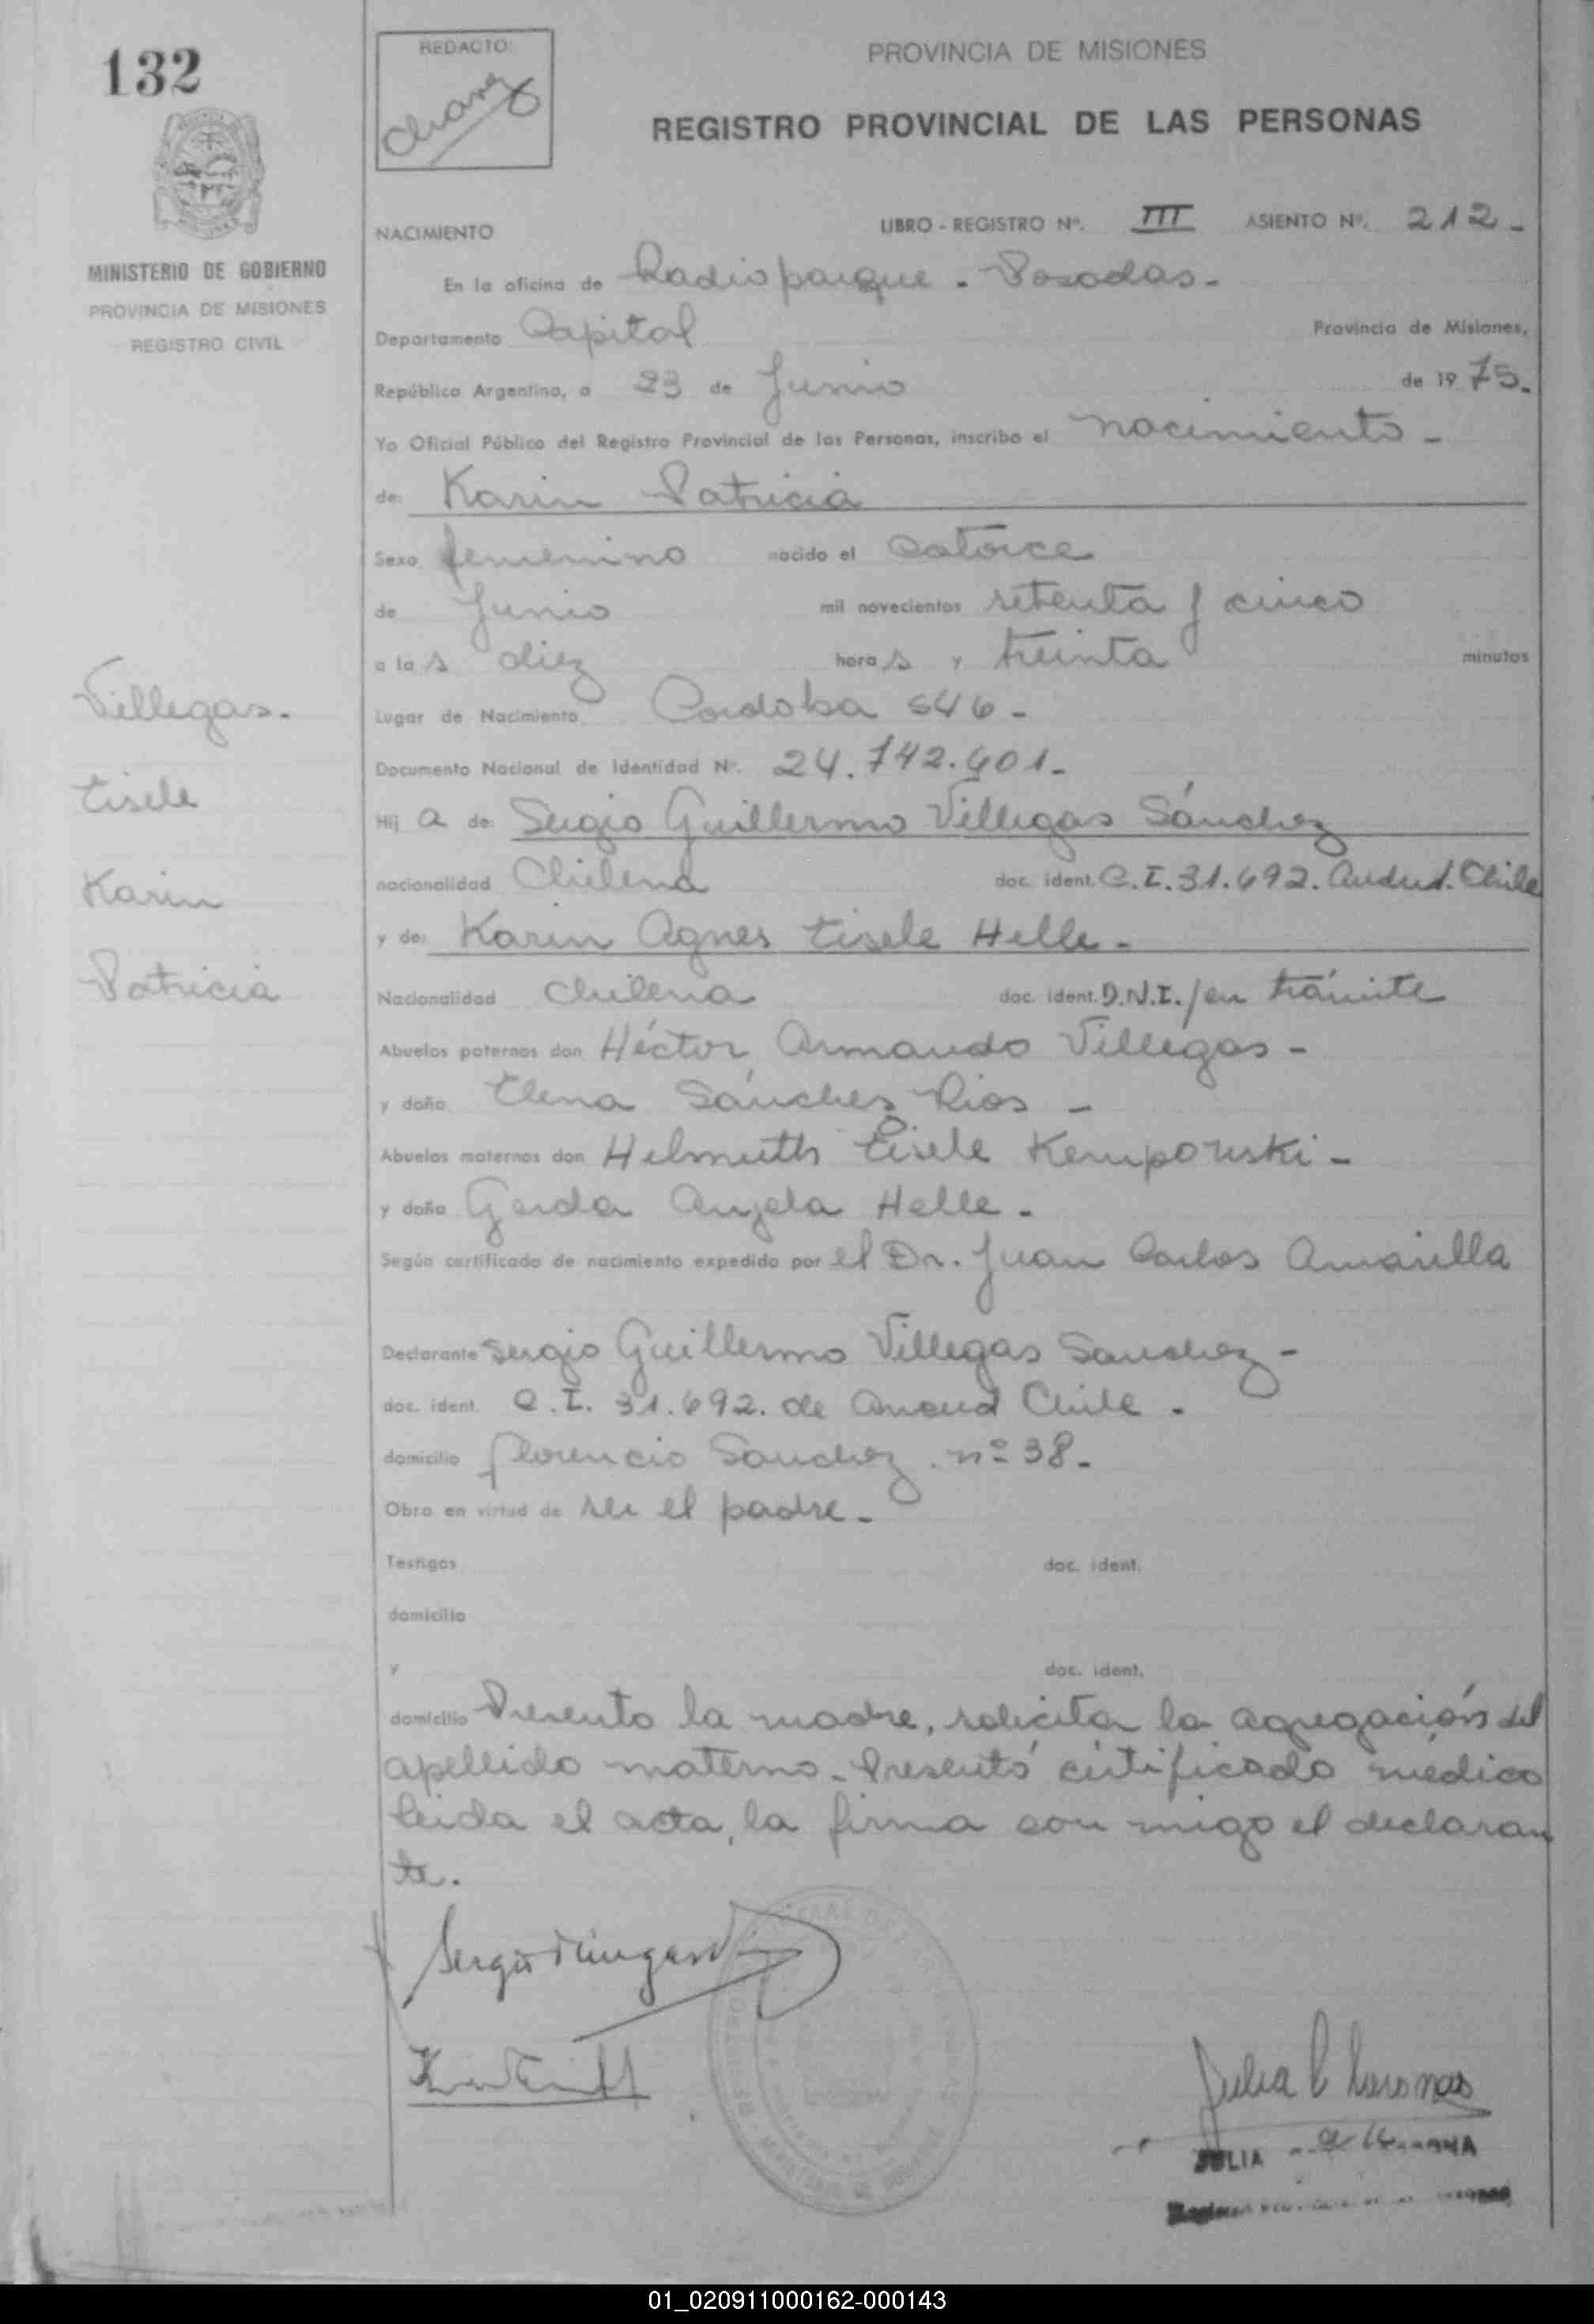 132
REDACTO:
PROVINCIA DE MISIONES
REGISTRO PROVINCIAL DE LAS PERSONAS
MINISTERIO DE GOBIERNO
PROVINCIA DE MISIONES
REGISTRO CIVIL
NACIMIENTO LIBRO - REGISTRO Nº. III ASIENTO Nº. 212-
En la oficina de Radioparque - Posadas-
Departamento Capital Provincia de Misiones,
República Argentina, a 23 de Junio de 1975.
Yo Oficial Público del Registro Provincial de las Personas, inscribo el nacimiento-
de: Karin Patricia
Sexo femenino nacido el catorce
de Junio mil novecientos setenta y cinco
a las diez horas y treinta minutos
Lugar de Nacimiento Cordoba 546-
Documento Nacional de Identidad Nº. 24.742.401-
Hija de: Sergio Guillermo Villegas Sánchez
nacionalidad Chilena doc. ident. C.I. 31.692. Chile
y de: Karin Agnes Eisele Helle-
Nacionalidad Chilena doc. ident. D.N.I./en trámite
Abuelos paternos don Héctor Armando Villegas-
y doña Elena Sánchez Rios -
Abuelos maternos don Helmuth Eisele Kemporuski-
y doña Gerda Angela Helle.
Según certificado de nacimiento expedido por el Dr. Juan Carlos Amarilla
Declarante Sergio Guillermo Villegas Sanchez-
doc. ident. C.I. 31.692. de Ancud Chile.
domicilio florencio Sanchez nº 38-
Obra en virtud de ser el padre-
Testigos doc. ident.
domicilio
y doc. ident.
domicilio Presento la madre, solicita la agregación del
apellido materno-Presentó certificado médico
leida el acta, la firma con migo el declaran
te.
Villegas-
Eisele
Karin
Patricia
JULIA
01_020911000162-000143